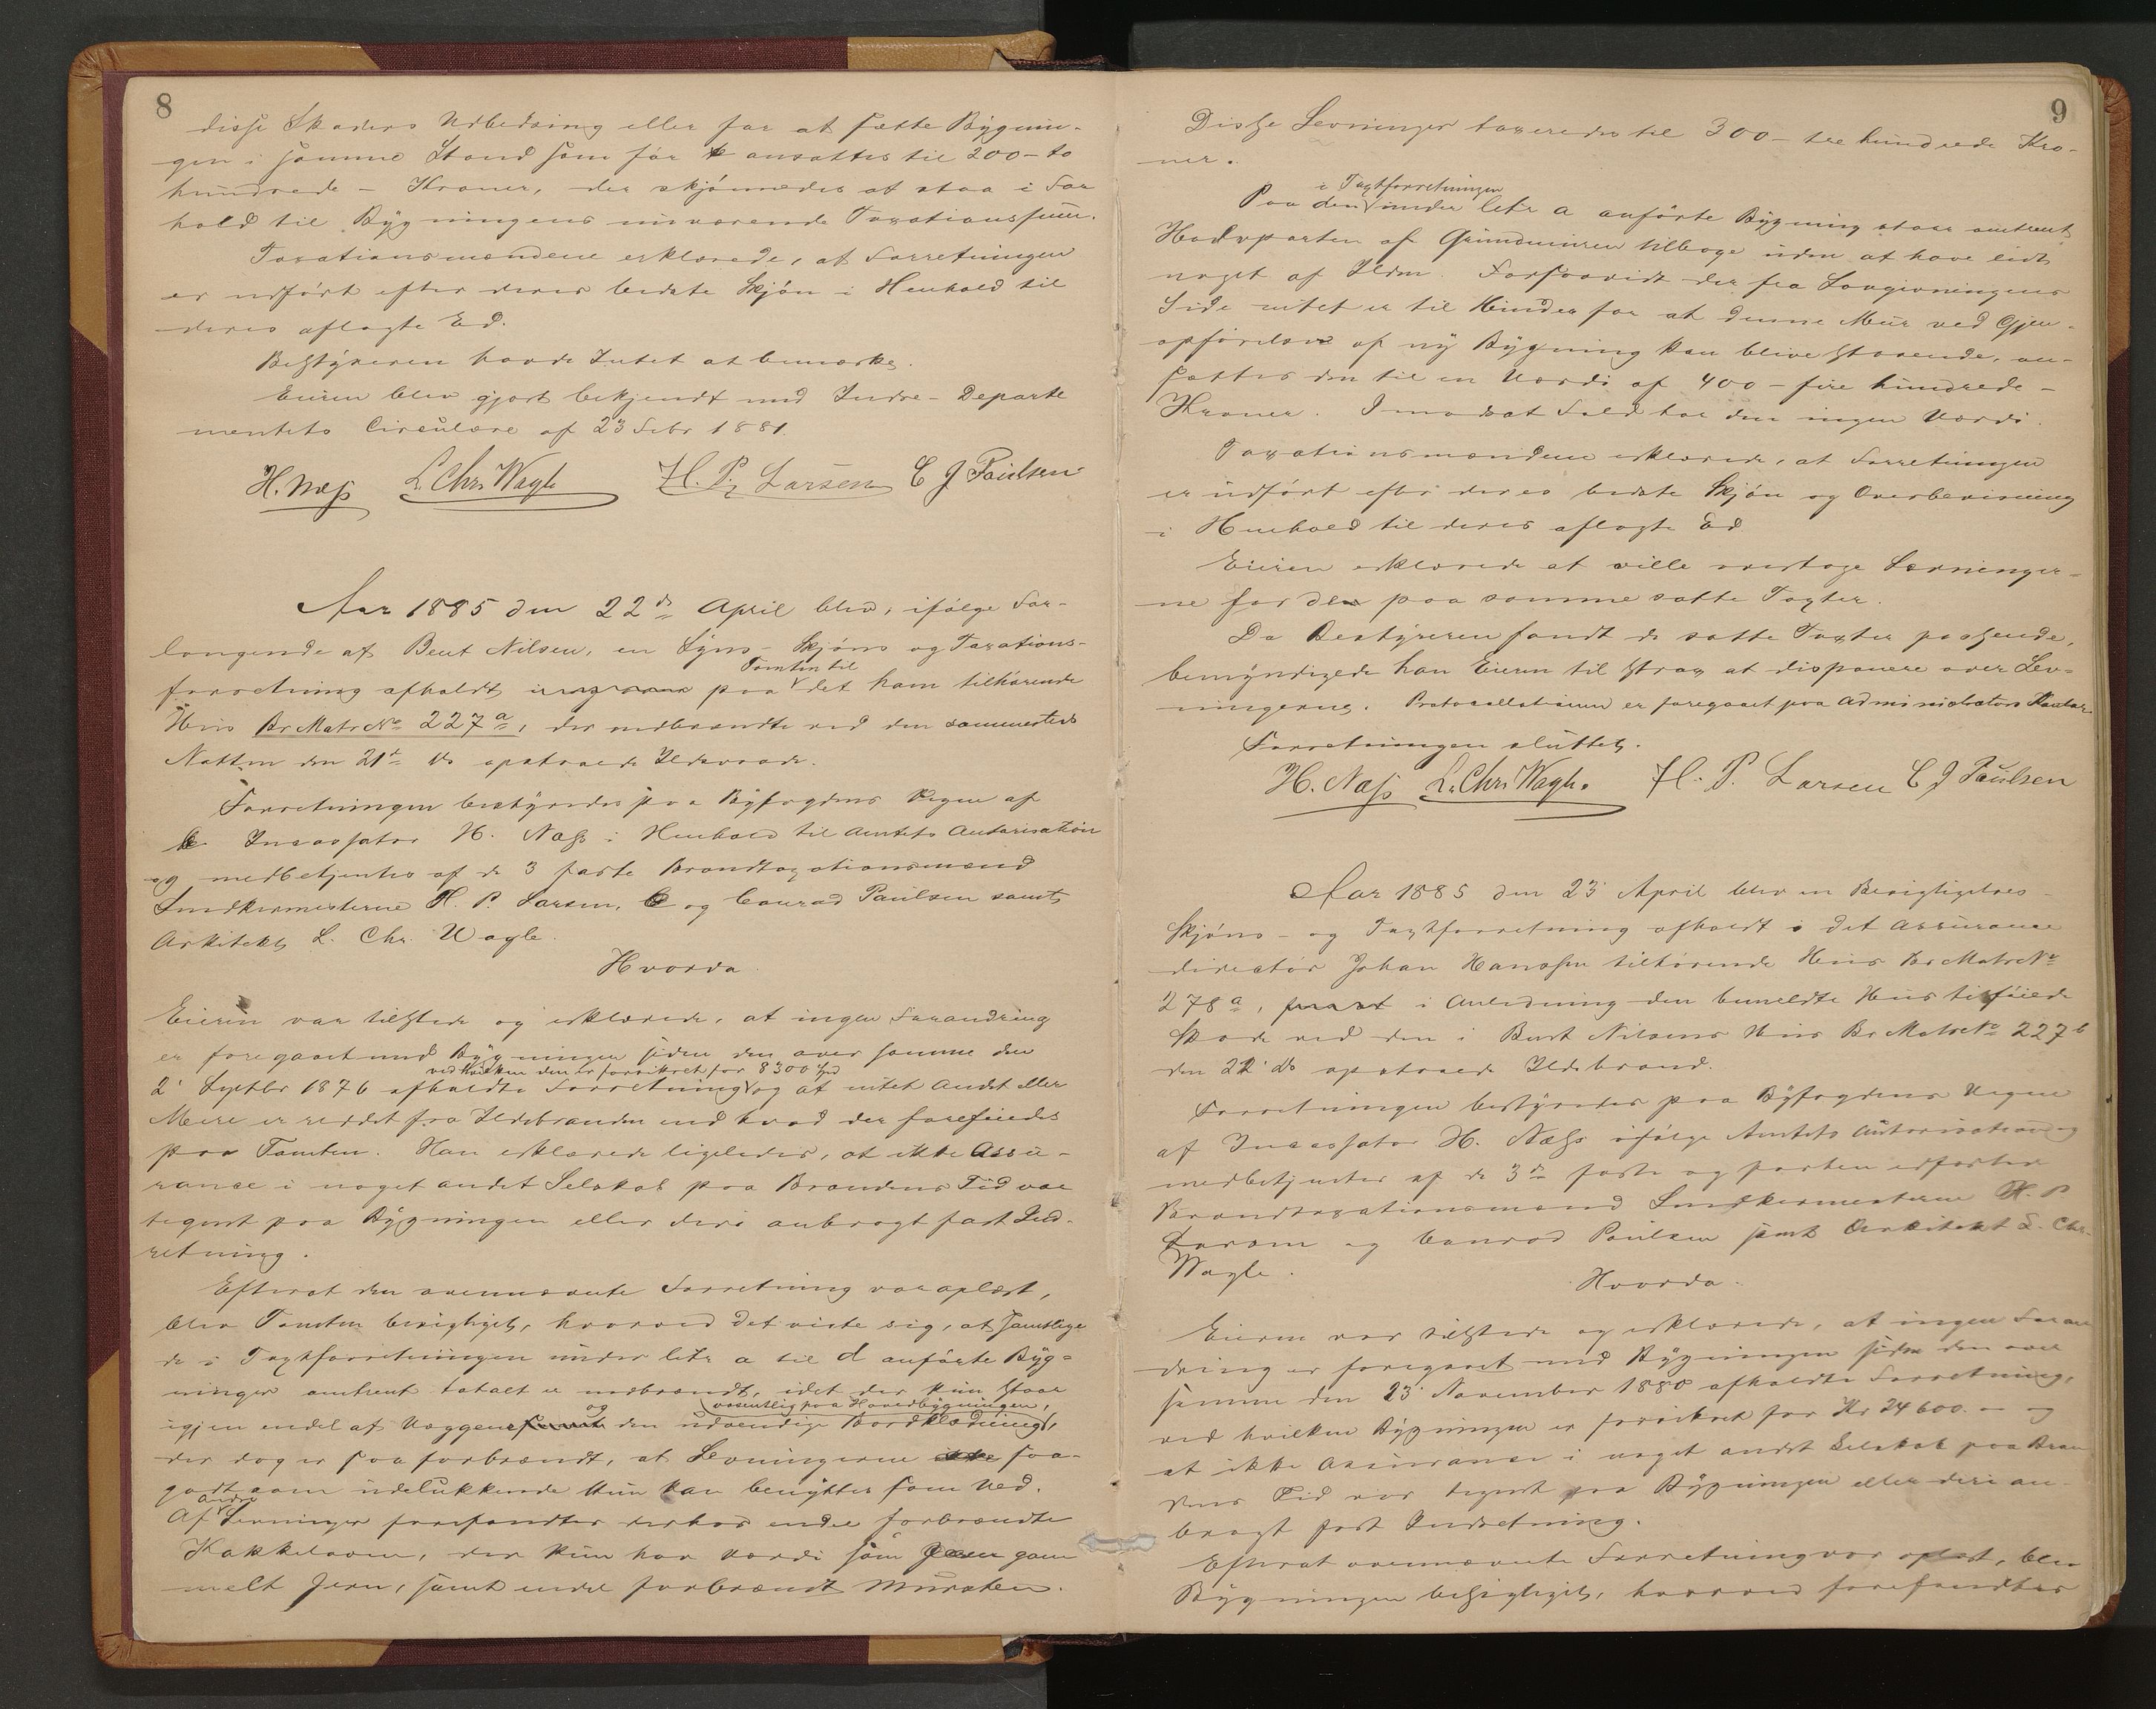 8
disse Skaders Udbedring eller for at sætte Bygnin-
gen i samme Stand som før ansattes til 200 – to
hundrede – Kroner, der skjønnedes at staa i For
hold til Bygningens nuværende Taxationssum.
Taxationsmændene erklærede, at Forretningen
er udført efter deres bedste Skjøn i Henhold til
deres aflagte Ed.
Bestyreren havde Intet at bemærke.
Eieren blev gjort bekjendt med Indre-Departe
mentets Circulære af 23 Febr 1881.
H. Næss L. Chr. Wagle H. P. Larsen C J Paulsen
Aar 1885 den 22de April blev, ifølge For-
langende af Bent Nilsen, en Syns- Skjøns og Taxations-
Tomten til
forretning afholdt paa det ham tilhørende
Hus Br Matr No 227a, der nedbrændte ved den sammesteds
Natten den 21de ds opstaaede Ildsvaade.
Forretningen bestyredes paa Byfogdens Vegne af
Incassator H. Næss i Henhold til Amtets Autorisation
og medbetjentes af de 3 faste Brandtaxationsmænd
Snedkermesterne H. P. Larsen, og Conrad Paulsen samt
Arkitekt L. Chr. Wagle.
Hvorda
Eieren var tilstede og erklærede, at ingen Forandring
er foregaaet med Bygningen siden den over samme den
ved hvilken den er forsikret for 8300 Kr
2' Septbr 1876 afholdte Forretning og at intet Andet eller
Mere er reddet fra Ildebranden end hvad der forefindes
paa Tomten. Han erklærede ligeledes, at ikke Assu-
rance i noget andet Selskab paa Brandens Tid var
tegnet paa Bygningen eller deri anbragt fast Ind-
retning.
Efterat den ovennævnte Forretning var oplæst,
blev Tomten besigtiget, hvorved det viste sig, at samtlige
de i Taxtforretningen under litr a til d anførte Byg-
ninger omtrent totalt er nedbrændt, idet der kun staar
og væsentlig paa Hovedbygningen,
igjen endel af Væggene den udvendige Bordklædning,
der dog er saa forbrændt, at Levningerne saa-
godt som udelukkende kun kan benyttes som Ved.
andre
Af Levninger forefandtes derhos endel forbrændte
Kakkelovne, der kun har Værdi som gam
melt Jern, samt endel forbrændt Mursten.
9
Disse Levninger taxeredes til 300 – tre hundrede Kro-
ner.
i Taxtforretningen
Paa den under litr a anførte Bygning staar omtrent
Halvparten af Grundmuren tilbage uden at have lidt
noget af Ilden. Forsaavidt der fra Lovgivningens
Side intet er til Hinder for at denne Mur ved Gjen-
opførelse af ny Bygning kan blive staaende, an-
sættes den til en Værdi af 400 – fire hundrede –
Kroner. I modsat Fald har den ingen Værdi.
Taxationsmændene erklærede, at Forretningen
er udført efter deres bedste Skjøn og Overbevisning
i Henhold til deres aflagte Ed.
Eieren erklærede at ville overtage Levninger-
ne for den paa samme satte Taxter.
Da Bestyreren fandt de satte Taxter passende,
bemyndigede han Eieren til strax at disponere over Lev-
ningerne. Protocollationen er foregaaet paa Administrators Kontor.
Forretningen sluttet.
H. Næss L. Chr. Wagle. H. P. Larsen C J Paulsen
Aar 1885 den 23' April blev en Besigtigelses-
Skjøns- og Taxtforretning afholdt i det Assurance
director Johan Hanssen tilhørende Hus Br Matr No
278a, i Anledning den bemeldte Hus tilføiede
Skade ved den i Bent Nilsens Hus Br Matr No 227b
den 22' ds opstaaede Ildebrand.
Forretningen bestyredes paa Byfogdens Vegne
af Incassator H. Næss ifølge Amtets Autorisation og
medbetjentes af de 3de faste og
Brandtaxationsmænd Snedkermesterne H. P
Larsen og Conrad Paulsen samt Arkitekt L. Chr.
Wagle.
Hvorda.
Eieren var tilstede og erklærede, at ingen Foran
dring er foregaaet med Bygningen siden den over
samme den 23' November 1880 afholdte Forretning,
ved hvilken Bygningen er forsikret for Kr 24600.– og
at ikke Assurance i noget andet Selskab paa Bran
dens Tid var tegnet paa Bygningen eller deri an-
bragt fast Indretning.
Efterat ovennævnte Forretning var oplæst, blev
Bygningen besigtiget, hvorved forefandtes